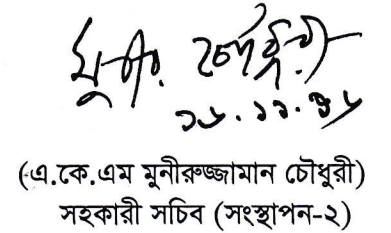 মুনীর চৌধুরী
(এ.কে.এম মুনীরুজ্জামান চৌধুরী)
সহকারী সচিব (সংস্থাপন-২)